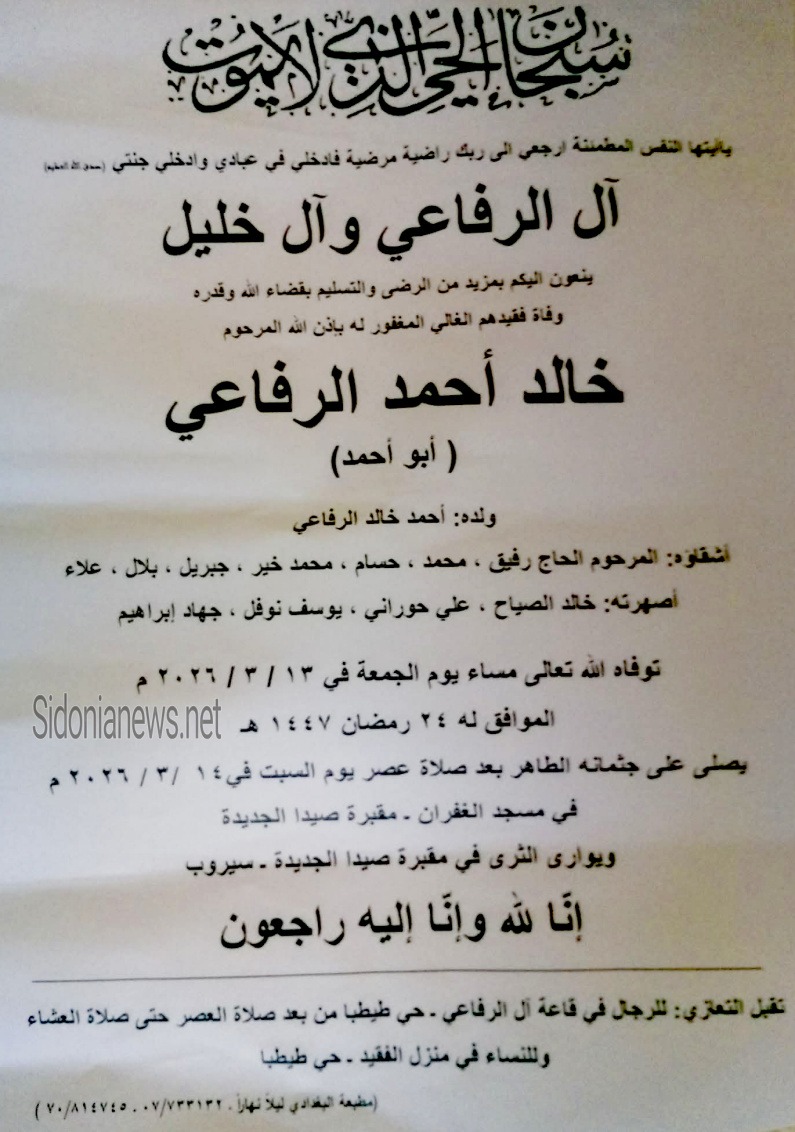 سبحان الحي الذي لا يموت
ياأيتها النفس المطمئنة ارجعي الى ربك راضية مرضية فادخلي في عبادي وادخلي جنتي (صدق الله العظيم)
آل الرفاعي وآل خليل
ينعون اليكم بمزيد من الرضى والتسليم بقضاء الله وقدره
وفاة فقيدهم الغالي المغفور له بإذن الله المرحوم
خالد أحمد الرفاعي
( أبو أحمد)
ولده: أحمد خالد الرفاعي
أشقاؤه: المرحوم الحاج رفيق ، محمد ، حسام ، محمد خير ، جبريل ، بلال ، علاء
أصهرته: خالد الصياح ، علي حوراني ، يوسف نوفل ، جهاد إبراهيم
توفاه الله تعالى مساء يوم الجمعة في ١٣ / ٣ / ٢٠٢٦ م
Sidonianews.net
الموافق له ٢٤ رمضان ١٤٤٧ هـ
يصلى على جثمانه الطاهر بعد صلاة عصر يوم السبت في ١٤ /٣ / ٢٠٢٦ م
في مسجد الغفران ـ مقبرة صيدا الجديدة
ويوارى الثرى في مقبرة صيدا الجديدة ـ سيروب
إنّا لله وإنّا إليه راجعون
تقبل التعازي: للرجال في قاعة آل الرفاعي ـ حي طيطبا من بعد صلاة العصر حتى صلاة العشاء
وللنساء في منزل الفقيد ـ حي طيطبا
(مطبعة البغدادي ليلاً نهاراً . ٠٧/٧٣٣١٣٢ . ٧٠/٨١٤٧٤٥ )